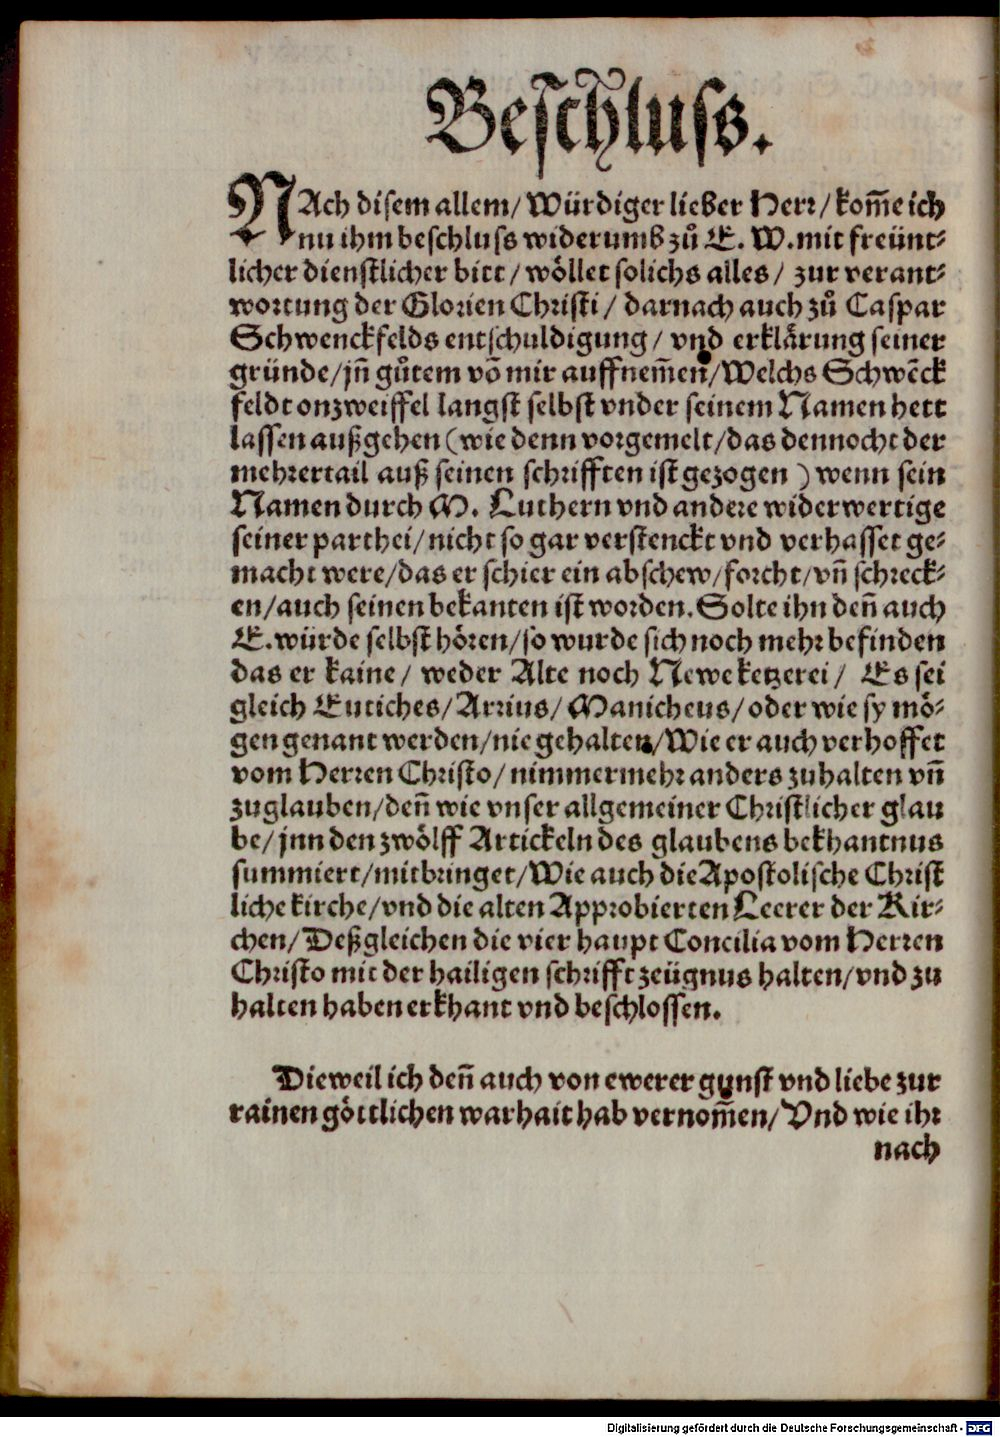 Beschluss.
NAch disem allem/ Würdiger lieber Herr/ kom̃e ich
nu ihm beschluss widerumb zů E. W. mit freünt⸗
licher dienstlicher bitt/ wöllet solichs alles/ zur verant⸗
wortung der Glorien Christi/ darnach auch zů Caspar
Schwenckfelds entschuldigung/ vnd erklärung seiner
gründe/ jñ gůtem võ mir auffnem̃en/ Welchs Schwẽck
feldt onzweiffel langst selbst vnder seinem Namen hett
lassen außgehen (wie denn vorgemelt/ das dennocht der
mehrertail auß seinen schrifften ist gezogen) wenn sein
Namen durch M. Luthern vnd andere widerwertige
seiner parthei/ nicht so gar verstenckt vnd verhasset ge⸗
macht were/ das er schier ein abschew/ forcht/ vñ schreck⸗
en/ auch seinen bekanten ist worden. Solte ihn deñ auch
E. würde selbst hören/ so wurde sich noch mehr befinden
das er kaine/ weder Alte noch Newe ketzerei/ Es sei
gleich Eutiches/ Arrius/ Manicheus/ oder wie sy mö⸗
gen genant werden/ nie gehalten/ Wie er auch verhoffet
vom Herren Christo/ nimmermehr anders zuhalten vñ
zuglauben/ deñ wie vnser allgemeiner Christlicher glau
be/ jnn den zwölff Artickeln des glaubens bekhantnus
summiert/ mitbringet/ Wie auch die Apostolische Christ
liche kirche/ vnd die alten Approbierten Leerer der Kir⸗
chen/ Deßgleichen die vier haupt Concilia vom Herren
Christo mit der hailigen schrifft zeügnus halten/ vnd zu
halten haben erkhant vnd beschlossen.
Dieweil ich deñ auch von ewerer gunst vnd liebe zur
rainen göttlichen warhait hab vernom̃en/ Vnd wie ihr
nach
Digitalisierung gefördert durch die Deutsche Forschungsgemeinschaft - DFG